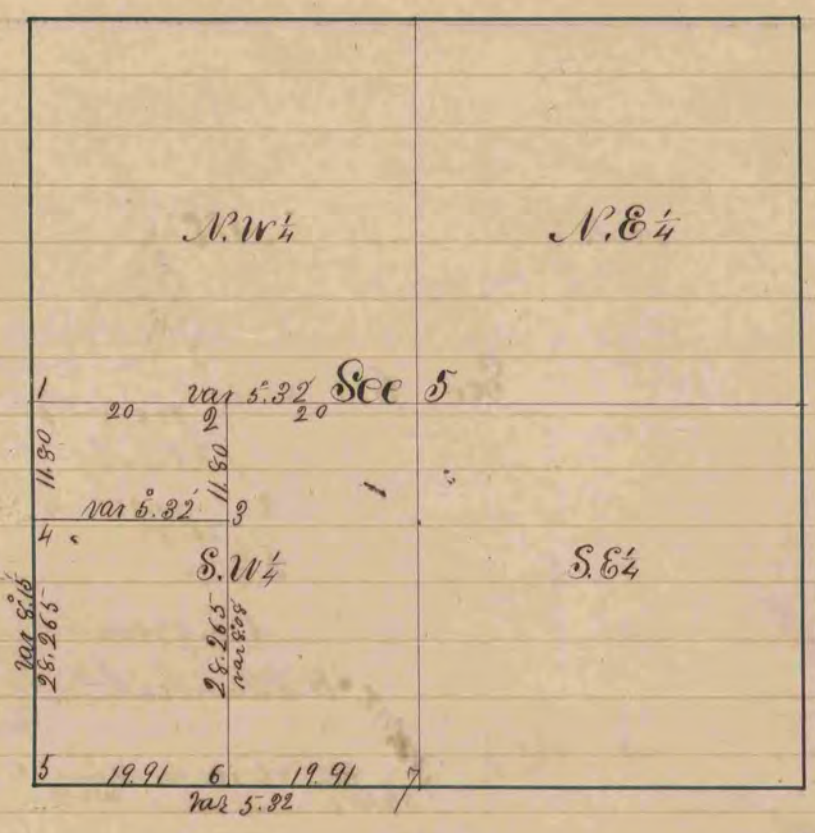 N.W 1/4
N.E 1/4
1
var 5°.32'
Sec 5
20
2
20
11.80
11.80
var 5°.32'
3
4
S.W 1/4
S.E 1/4
var 8°.15'
28.265
28.265
var 8°.08'
5
19.91
6
19.91
7
var 5.32